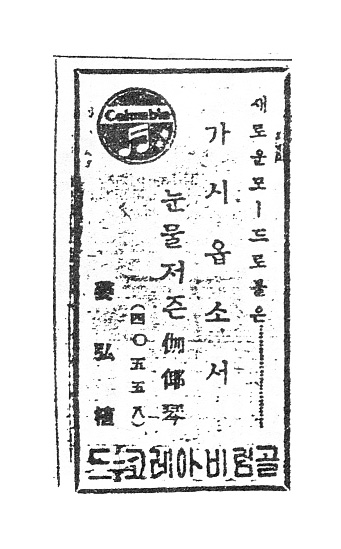 Columbia
새로운모ㅣ드로불은
가시옵소서
눈물저즌伽倻琴
(四〇五五八)
姜弘植
골럼비아레코드